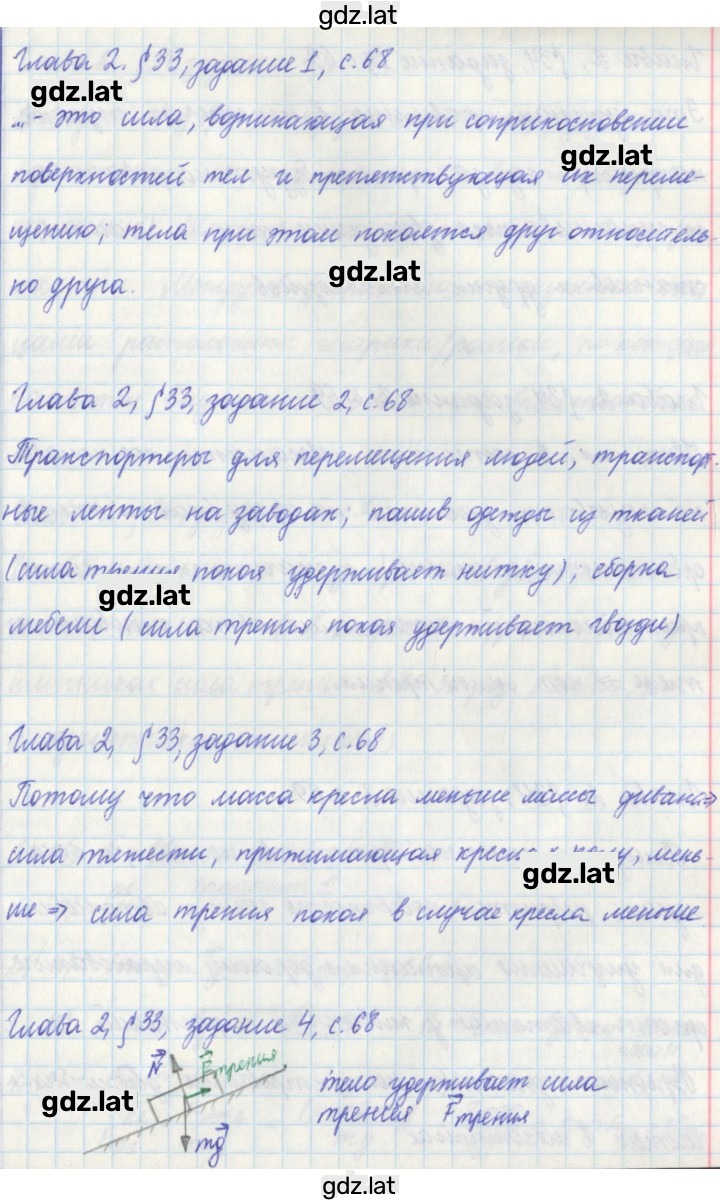 gdz.lat
Глава 2. §33, задание 1, с.68
gdz.lat
...- это сила, возникающая при соприкосновении
gdz.lat
поверхностей тел и препятствующая их переме-
щению, тела при этом покоятся друг относитель-
gdz.lat
но друга.
Глава 2, §33, задание 2, с.68
Транспортеры для перемещения людей, транспорт-
ные ленты на заводах; пошив одежды из тканей
(сила трения покоя удерживает нитку), сборка
gdz.lat
мебели (сила трения покоя удерживает гвозди)
Глава 2, §33, задание 3, с.68
Потому что масса кресла меньше массы дивана=>
сила тяжести, прижимающая кресло к полу, мень-
gdz.lat
ше => сила трения покоя в случае кресла меньше.
Глава 2, §33, задание 4, с.68
N
Fтрения
тело удерживает сила
gdz.lat
трения Fтрения
mg
gdz.lat